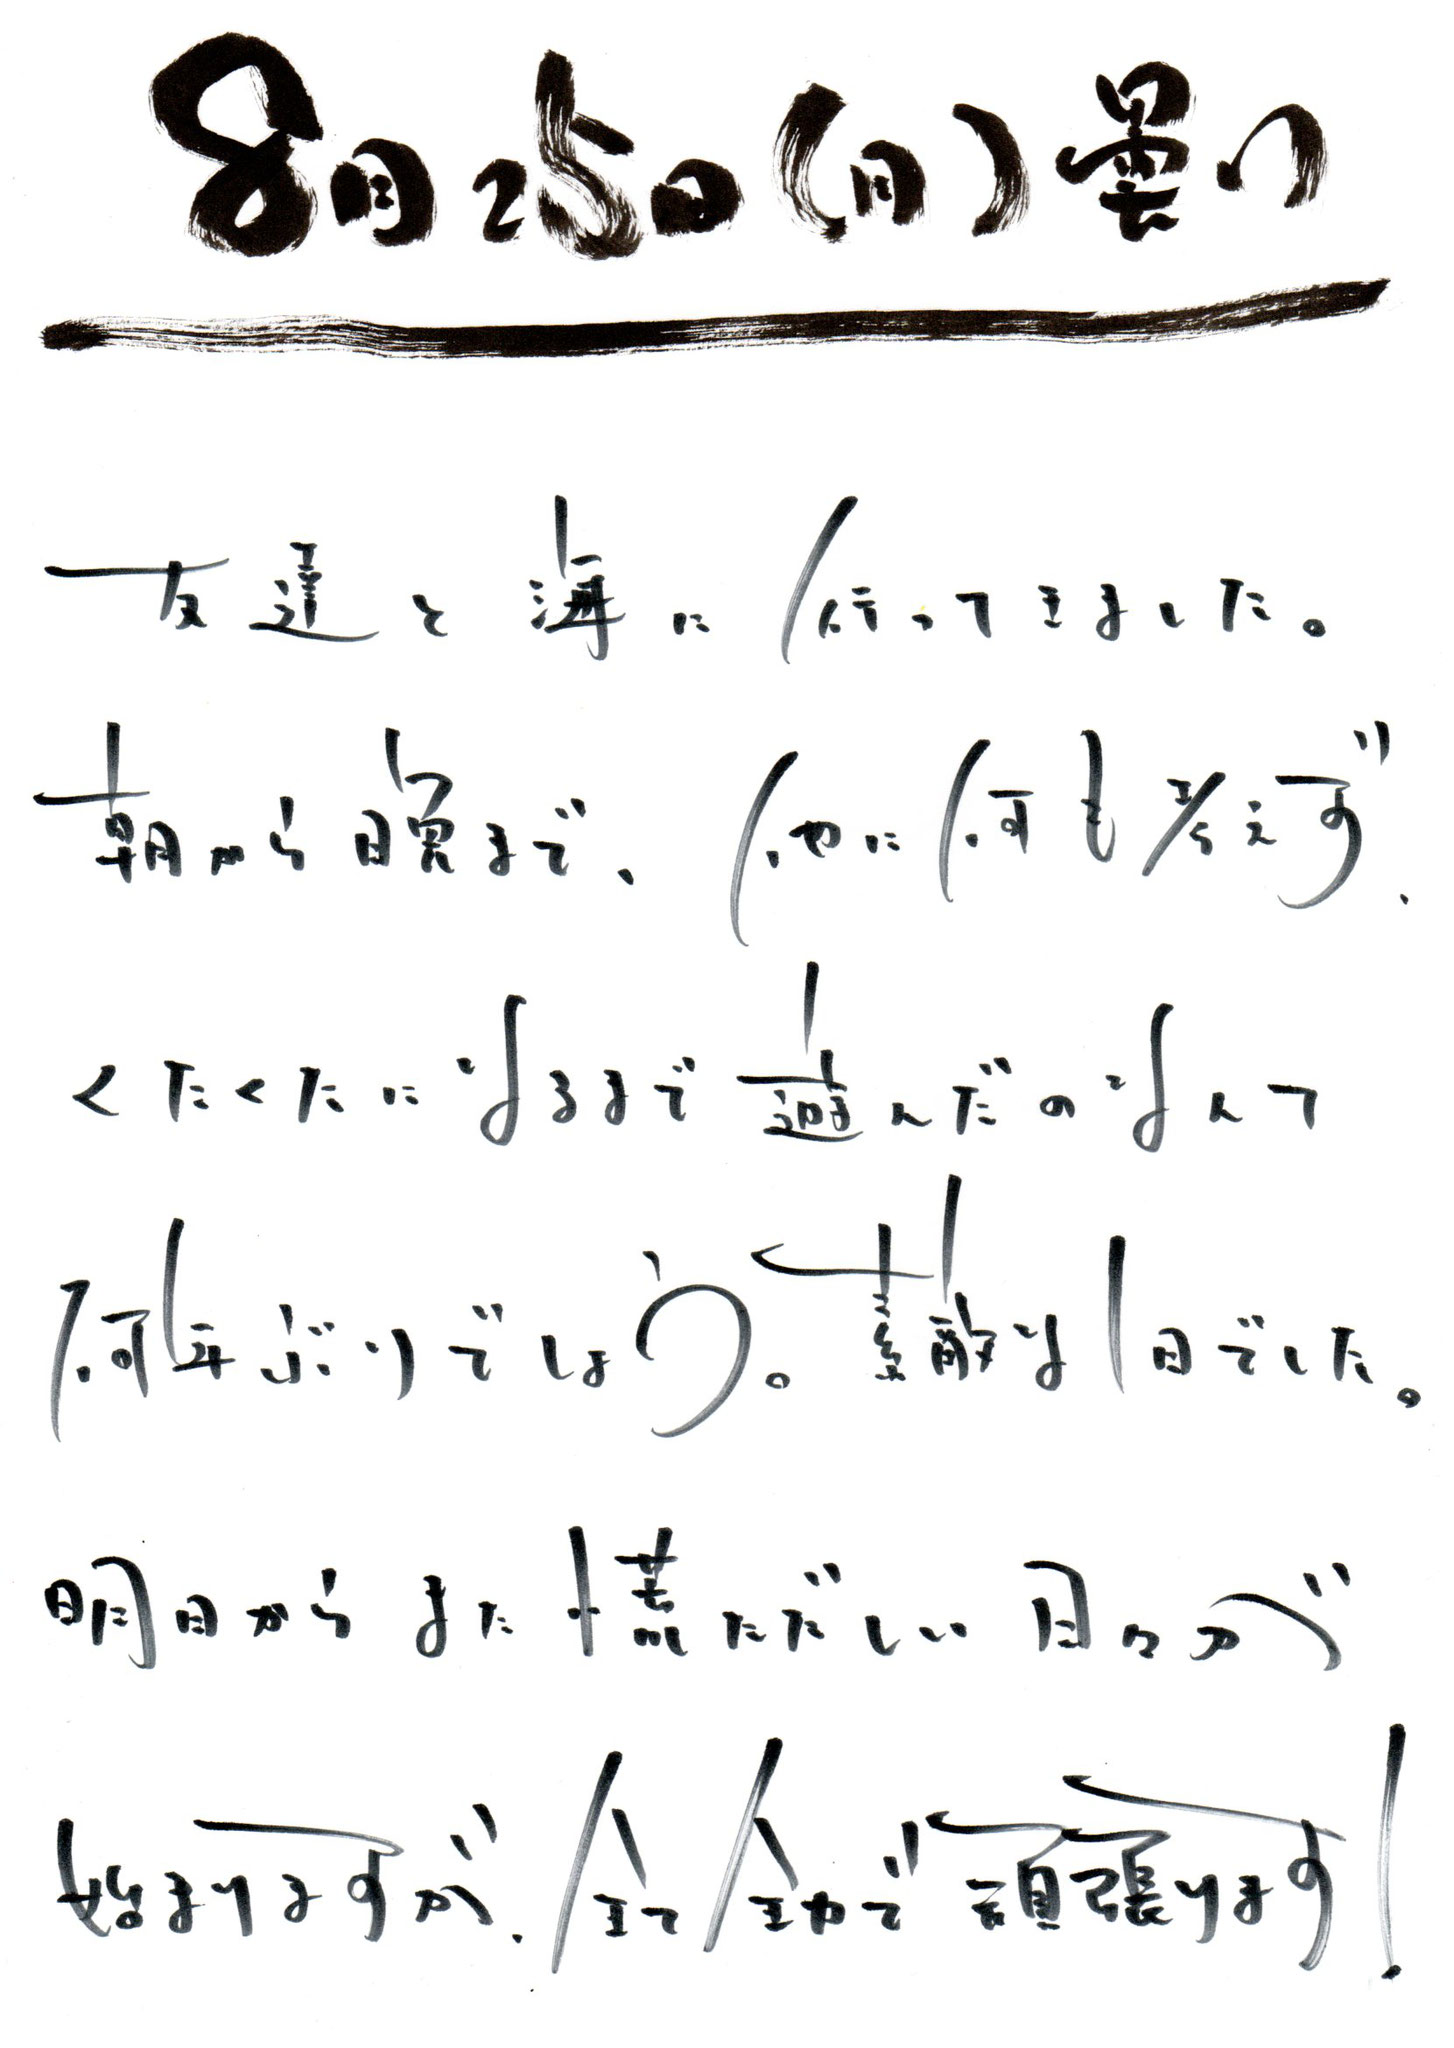 8月25日(月)曇り
友達と海に行ってきました。
朝から晩まで、他に何も考えず、
くたくたになるまで遊んだのなんて
何年ぶりでしょう。素敵な1日でした。
明日からまた慌ただしい日々が
始まりますが、全て全力で頑張ります!